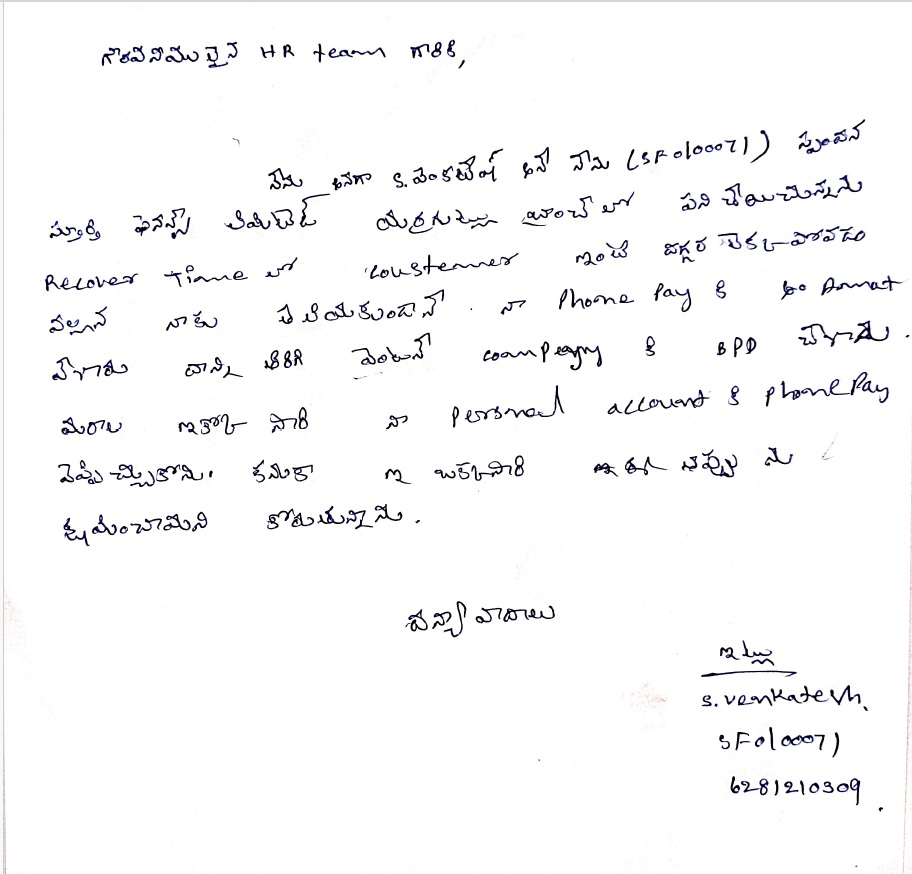 గౌరవనీములైన HR team గారికి,
నేను అనగా S. వెంకటేష్ అనే నేను (SF0100071) స్పందన
స్పూర్తి ఫైనాన్స్ లిమిటెడ్ యర్రగుట్ల బ్రాంచ్ లో పని చేయిచున్నను
Recover Time లో coustemer ఇంటి దగ్గర లేకపోవడం
వల్లన నాకు తెలియకుండానే. నా Phone Pay కి
వేశారు దాన్ని తిరిగి వెంటనే compeny కి BPD చేశాను.
మరల ఇకోక సారి నా Personal account కి phone Pay
వేపుచ్చుకోను. కనుకా ఇ ఒకకసారి ఈ తప్పు ను
క్షమించామని కోరుతున్నాను.
ధన్యావాదాలు
ఇట్లు
S. venkatesh.
SF010007)
6281210309.